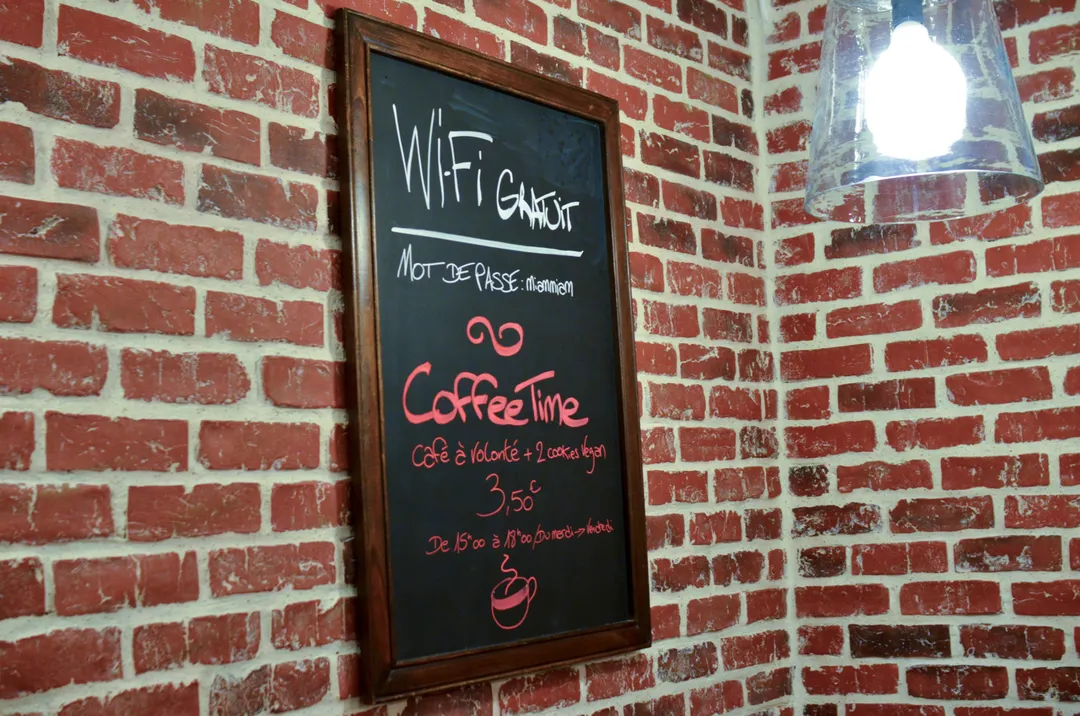 Wi-Fi GRATUIT
MOT DE PASSE : miammiam
Coffee Time
Café à volonté + 2 cookies Vegan
3,50€
De 15H00 à 18H00 / Du mardi → Vendredi